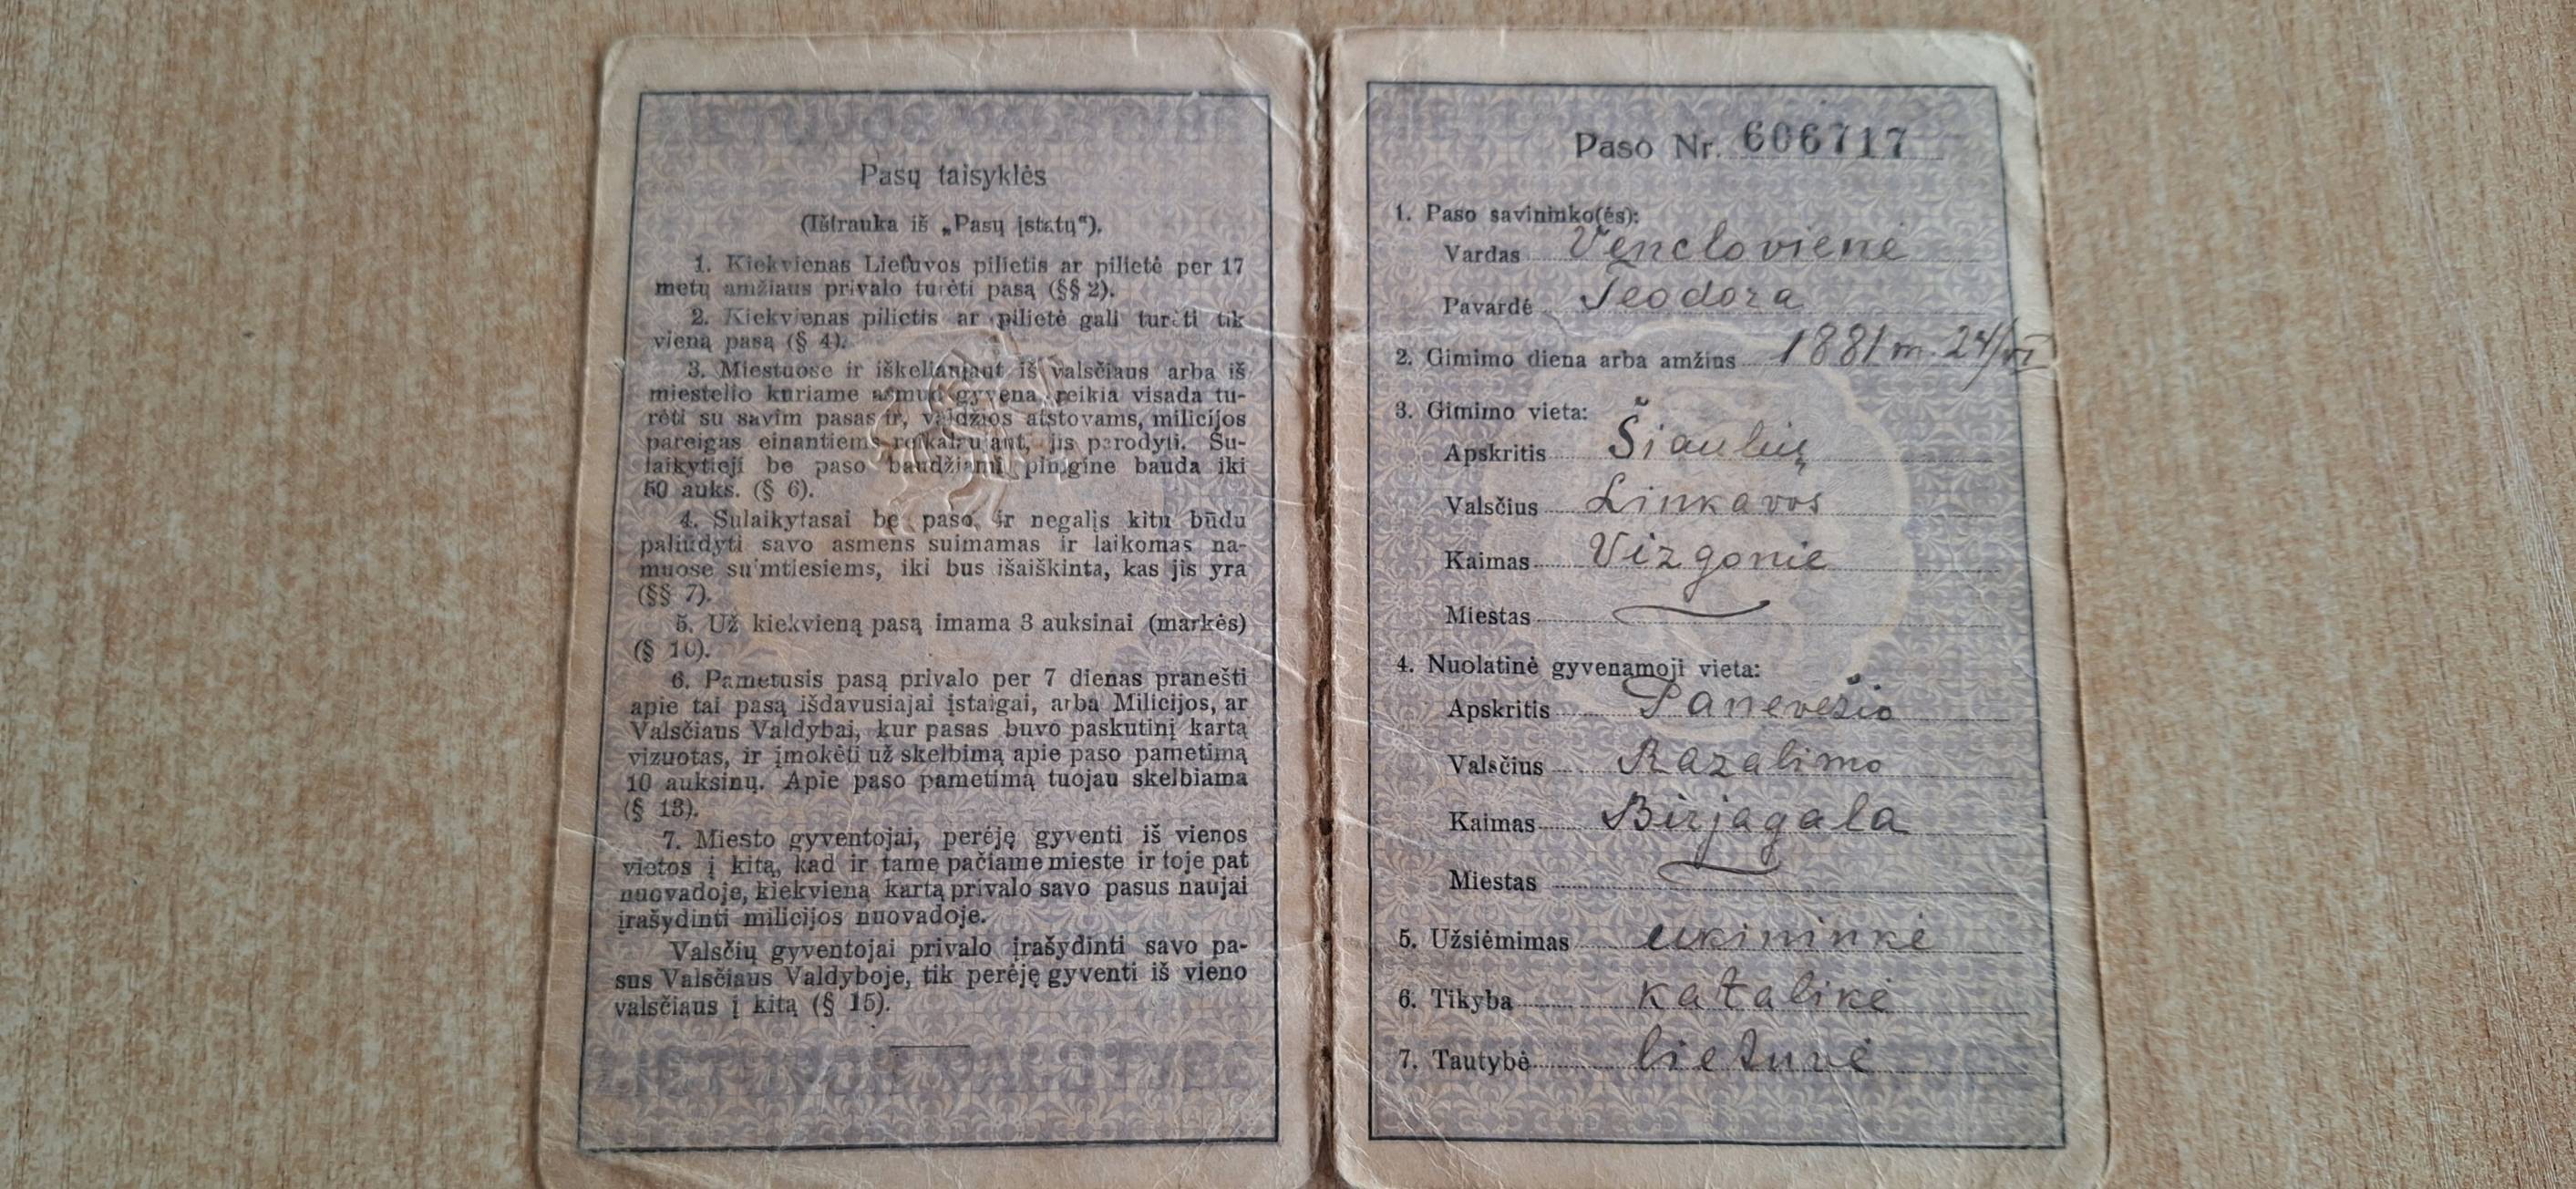 Pasų taisyklės
(Ištrauka iš „Pasų įstatų“).
1. Kiekvienas Lietuvos pilietis ar pilietė per 17
metų amžiaus privalo turėti pasą (§§ 2).
2. Kiekvienas pilietis ar pilietė gali turėti tik
vieną pasą (§ 4).
3. Miestuose ir iškeliaujant iš valsčiaus arba iš
miestelio kuriame asmuo gyvena reikia visada tu-
rėti su savim pasas ir, valdžios atstovams, milicijos
pareigas einantiems reikalaujant, jis parodyti. Su-
laikytieji be paso baudžiami pinigine bauda iki
50 auks. (§ 6).
4. Sulaikytasai be paso, ir negalįs kitu būdu
paliudyti savo asmens suimamas ir laikomas na-
muose suimtiesiems, iki bus išaiškinta, kas jis yra
(§§ 7).
5. Už kiekvieną pasą imama 3 auksinai (markės)
(§ 10).
6. Pametusis pasą privalo per 7 dienas pranešti
apie tai pasą išdavusiajai įstaigai, arba Milicijos, ar
Valsčiaus Valdybai, kur pasas buvo paskutinį kartą
vizuotas, ir įmokėti už skelbimą apie paso pametimą
10 auksinų. Apie paso pametimą tuojau skelbiama
(§ 13).
7. Miesto gyventojai, perėję gyventi iš vienos
vietos į kitą, kad ir tame pačiame mieste ir toje pat
nuovadoje, kiekvieną kartą privalo savo pasus naujai
įrašydinti milicijos nuovadoje.
Valsčių gyventojai privalo įrašydinti savo pa-
sus Valsčiaus Valdyboje, tik perėję gyventi iš vieno
valsčiaus į kitą (§ 15).
Paso Nr. 606717
1. Paso savininko(ės):
Vardas Venclovienė
Pavardė Teodora
2. Gimimo diena arba amžius 1881 m. 24/VI
3. Gimimo vieta:
Apskritis Šiaulių
Valsčius Linkavos
Kaimas Vizgonie
Miestas
4. Nuolatinė gyvenamoji vieta:
Apskritis Panevėžio
Valsčius Razalimo
Kaimas Birjagala
Miestas
5. Užsiėmimas ukininkė
6. Tikyba katalikė
7. Tautybė lietuvė